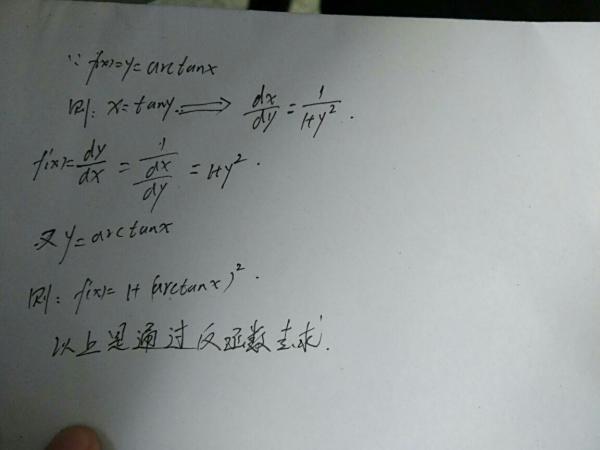 ∵ f(x)=y=arctanx
则: x=tany. ⟹ dx/dy = 1/1+y².
f'(x)= dy/dx = 1/(dx/dy) = 1+y².
又y=arctanx
则: f'(x)= 1+(arctanx)².
以上是通过反函数去求.